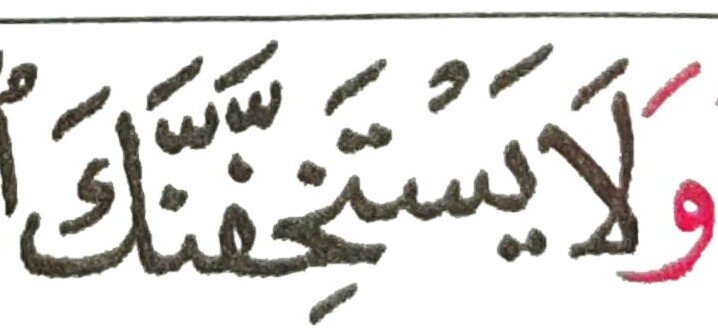 وَلَا يَسْتَخِفَّنَّكَ